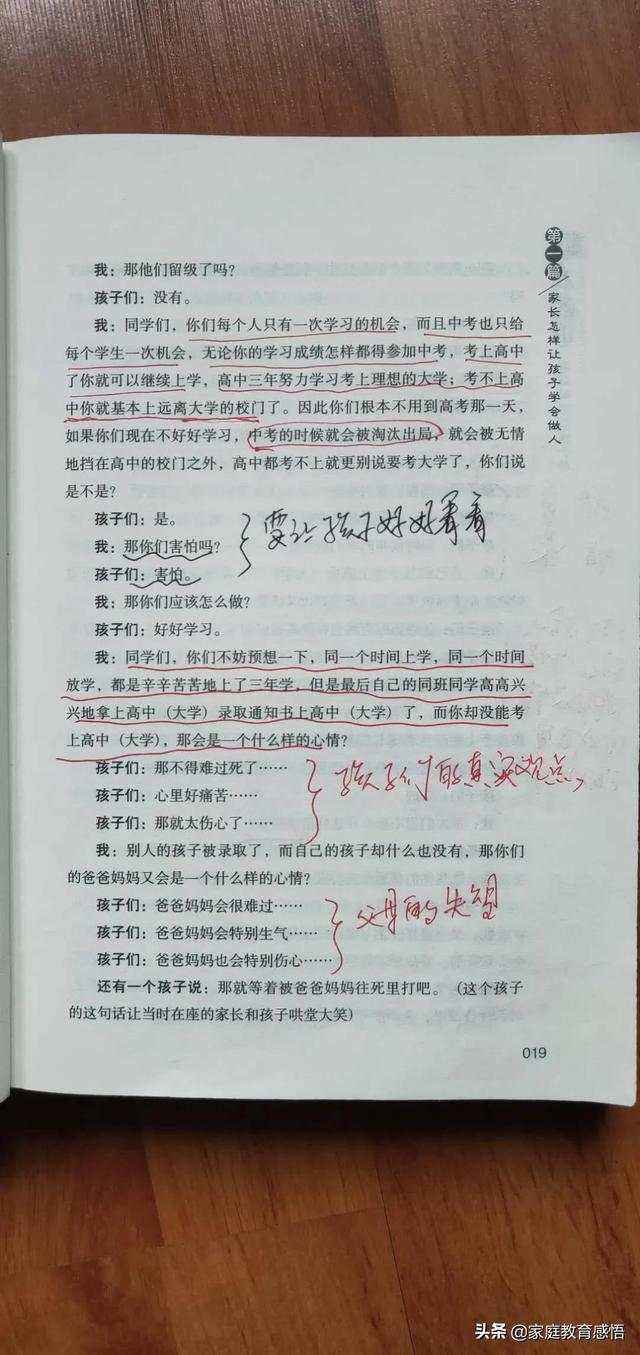 第一篇 家长怎样让孩子学会做人
我：那他们留级了吗？
孩子们：没有。
我：同学们，你们每个人只有一次学习的机会，而且中考也只给
每个学生一次机会，无论你的学习成绩怎样都得参加中考，考上高中
了你就可以继续上学，高中三年努力学习考上理想的大学；考不上高
中你就基本上远离大学的校门了。因此你们根本不用到高考那一天，
如果你们现在不好好学习，中考的时候就会被淘汰出局，就会被无情
地挡在高中的校门之外，高中都考不上就更别说要考大学了，你们说
是不是？
孩子们：是。
我：那你们害怕吗？
要让孩子好好看看
孩子们：害怕。
我：那你们应该怎么做？
孩子们：好好学习。
我：同学们，你们不妨预想一下，同一个时间上学，同一个时间
放学，都是辛辛苦苦地上了三年学，但是最后自己的同班同学高高兴
兴地拿上高中（大学）录取通知书上高中（大学）了，而你却没能考
上高中（大学），那会是一个什么样的心情？
孩子们：那不得难过死了……
孩子们：心里好痛苦……
孩子们的真实观点
孩子们：那就太伤心了……
我：别人的孩子被录取了，而自己的孩子却什么也没有，那你们
的爸爸妈妈又会是一个什么样的心情？
孩子们：爸爸妈妈会很难过……
孩子们：爸爸妈妈会特别生气……
父母的失望
孩子们：爸爸妈妈也会特别伤心……
还有一个孩子说：那就等着被爸爸妈妈往死里打吧。（这个孩子
的这句话让当时在座的家长和孩子哄堂大笑）
019
头条 @家庭教育感悟